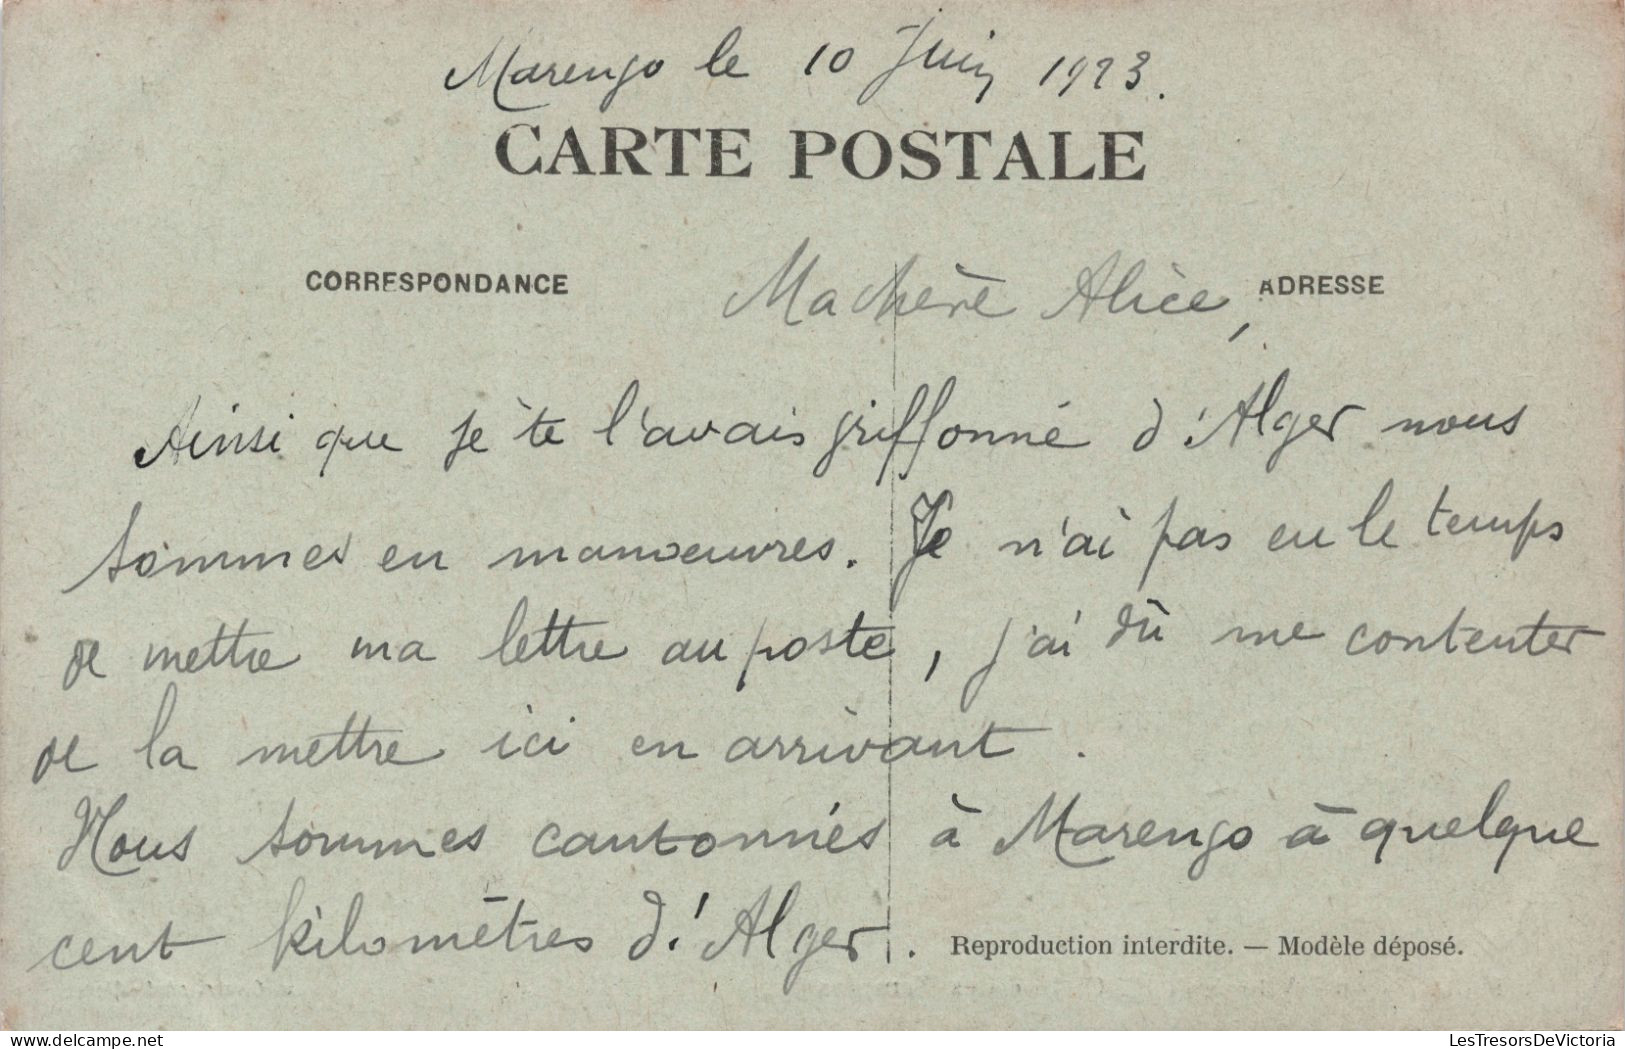 Marengo le 10 Juin 1923.
CARTE POSTALE
CORRESPONDANCE
ADRESSE
Ma chère Alice,
Ainsi que je te l'avais griffonné d'Alger nous
sommes en manoeuvres. Je n'ai pas eu le temps
de mettre ma lettre au poste, j'ai dû me contenter
de la mettre ici en arrivant.
Nous sommes cantonnés à Marengo à quelque
cent kilomètres d'Alger.
Reproduction interdite. — Modèle déposé.
delcampe.net
LesTresorsDeVictoria